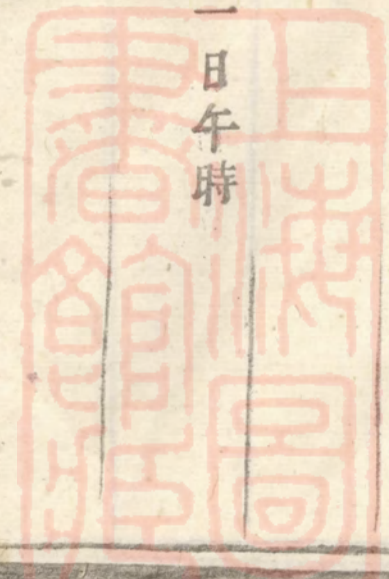 一日午時
上海圖
書館藏